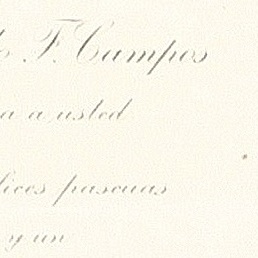 F. Campos
a usted
lices pascuas
y un